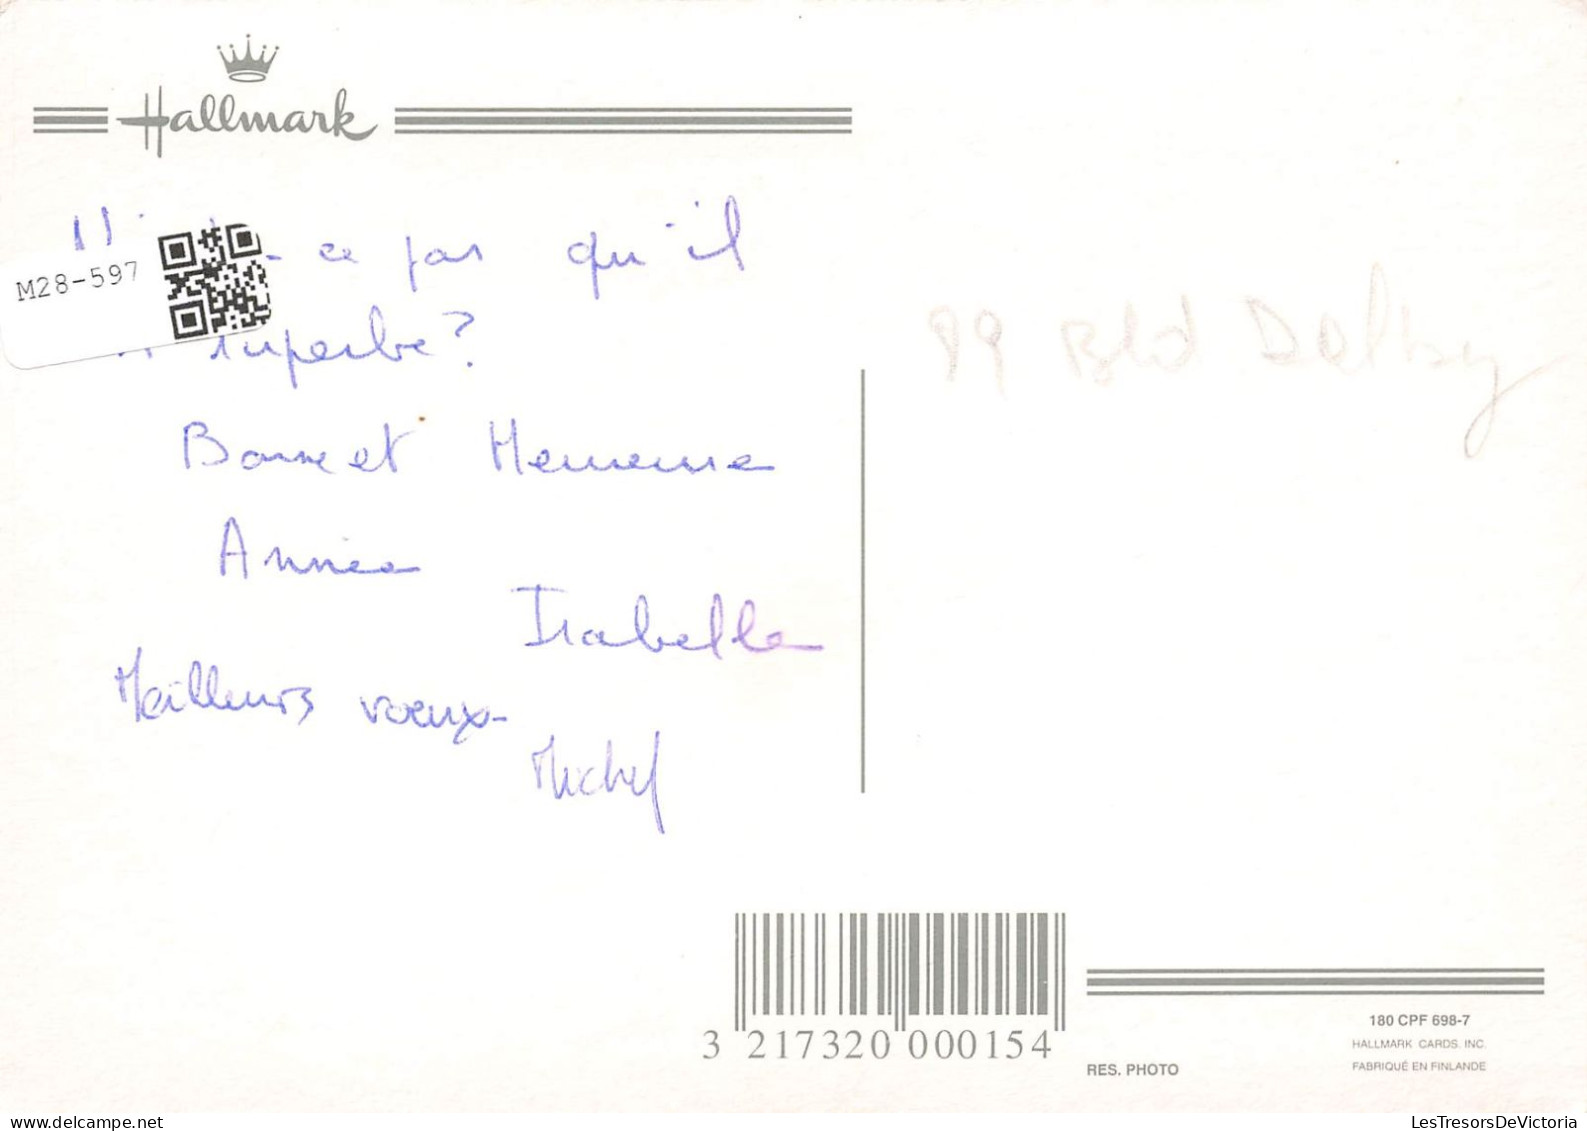 Hallmark
- ce pas qu'il
superbe?
Bonne et Heureuse
Année
Isabelle
Meilleurs voeux-
Michel
M28-597
89 Bld
3 217320 000154
RES. PHOTO
180 CPF 698-7
HALLMARK CARDS. INC.
FABRIQUÉ EN FINLANDE
LesTresorsDeVictoria